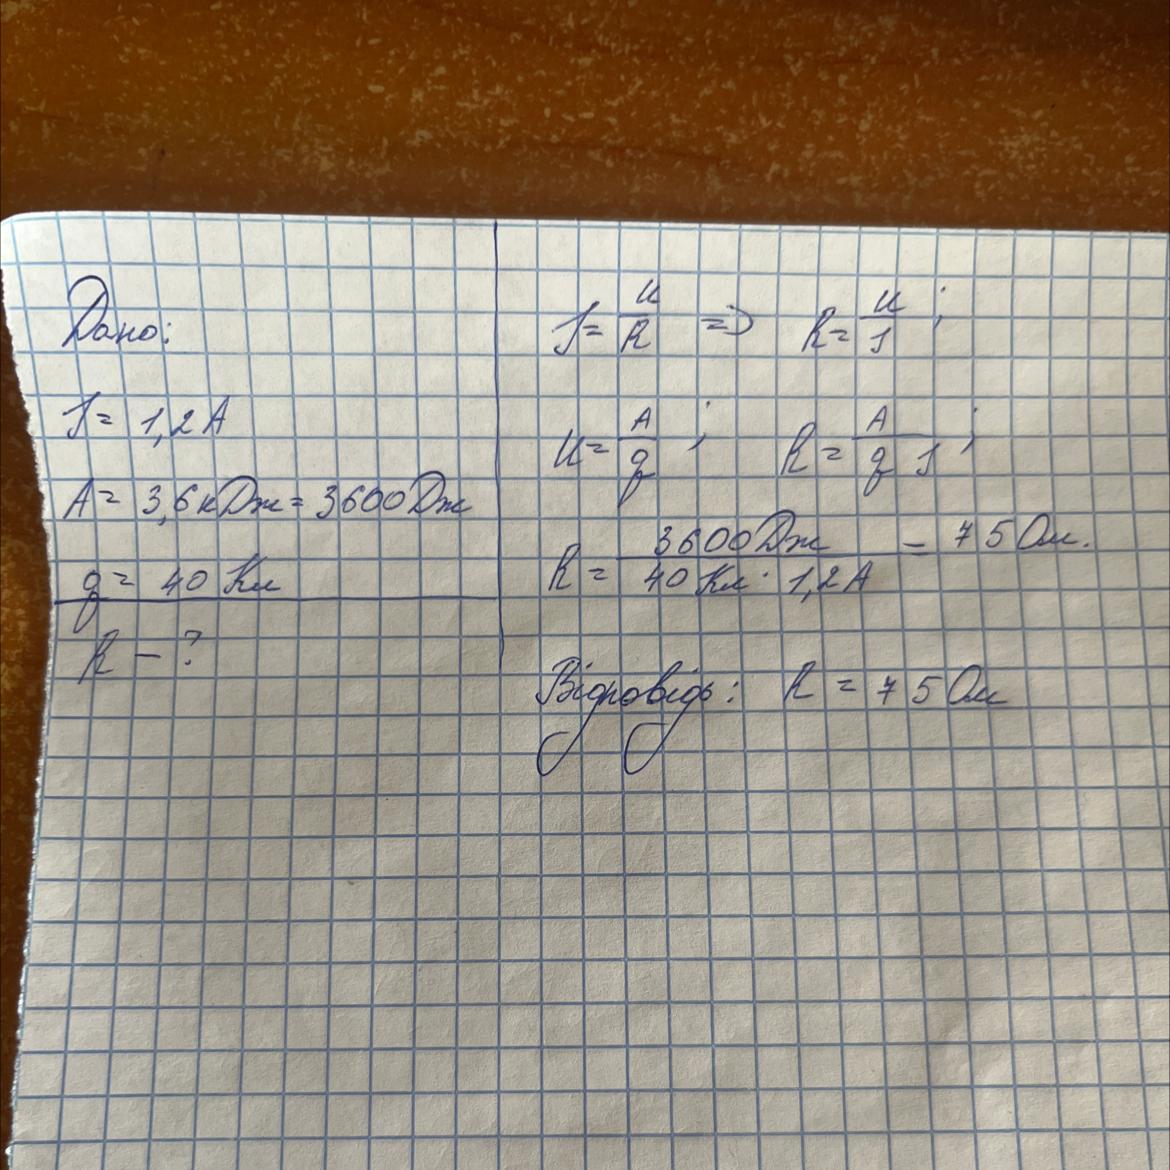 Дано:
I = 1,2 А
A = 3,6 кДж = 3600 Дж
q = 40 Кл
R – ?
I = U/R => R = U/I ;
U = A/q ; R = A/q I ;
R = 3600 Дж/40 Кл · 1,2 А = 75 Ом.
Відповідь: R = 75 Ом